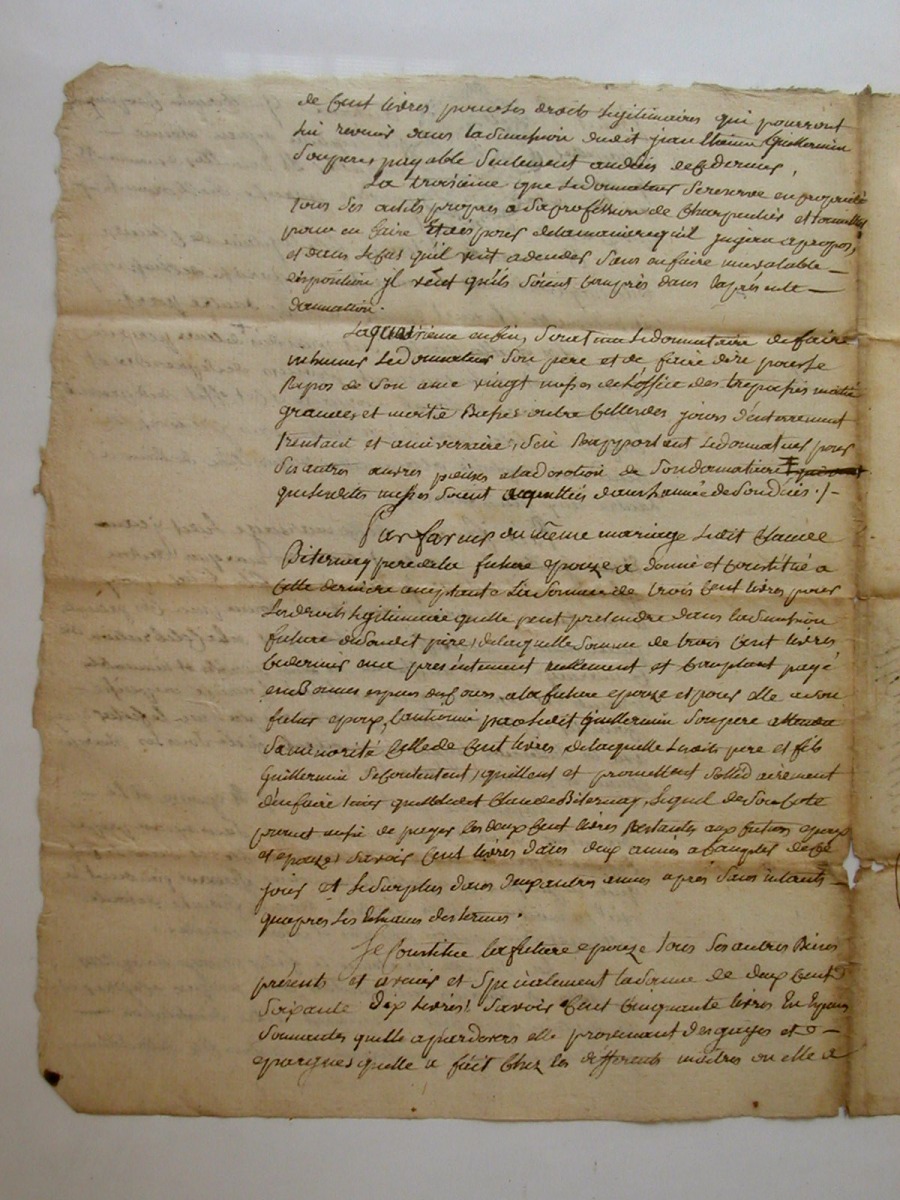 de Cent livres pour ses droits legitimaires qui pourront
lui revenir dans la succession dudit jean Guillermin
son pere, payable seulement au deces de ce dernier,
La troisieme que le donnateur se reserve en proprieté
tous ses outils propres a sa profession de Charpentier et
pour en faire et de la maniere qu'il jugera apropos,
et dans le cas qu'il vint a deceder sans en faire une valable
disposition il veut qu'ils soient compris dans la presente
donnation.
La quatrieme enfin, sera tenu le donnataire de faire
inhumer le donnateur son pere et de faire dire pour le
Repos de son ame vingt messes de l'office des trepassés moitié
grandes, et moitié Basses outre celles des jours d'enterrement
trentain et aniversaire, s'en Rapportant le donnateur pour
ses autres œuvres pieuses a la devotion de son donnataire
que lesdites messes soient acquittées dans l'année de son deces ./-
En faveur du même mariage ledit Claude
Biternay pere de la future epouze a donné et constitué a
cette derniere la somme de trois Cent livres pour
les droits legitimaire quelle peut pretendre dans la succession
future dudit pere, de laquelle somme de trois Cent livres
ce dernier a presentement reelement et comptant payé
en Bonnes especes du cours a la future epouze et pour elle a son
futur epoux, l'autorité dudit Guillermin son pere attendu
sa minorité celle de Cent livres de laquelle lesdits pere et fils
Guillermin se contentent, quittent et promettent solidairement
d'en faire tenir quitte ledit Claude Biternay, lequel de son coté
promet de payer les deux Cent livres Restantes aux futurs epoux
et epouze, savoir Cent livres dans deux années a compter de ce
jour et le surplus dans deux autres années apres sans interets
qu'apres les Echeances des termes.
Se Constitue la future epouze tous ses autres Biens
présents et avenir et specialement la somme de deux Cent
soixante dix livres, savoir Cent Cinquante livres En Especes
sonnantes quelle a pardevers elle provenant des gages et
epargnes quelle a fait Chez les différents maitres ou elle a